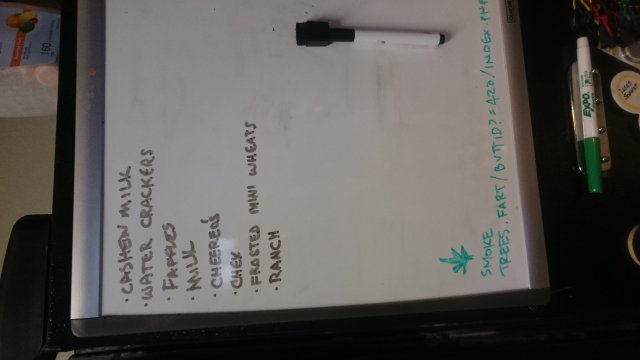 · CASHEW MILK
· WATER CRACKERS
· FAFFLES
· MILK
· CHEEREOS
· CHEX
· FROSTED MINI WHEATS
· RANCH
SMOKE
TREES.FART/BUTTID?=420/INDEX.PHP
EXPO
160